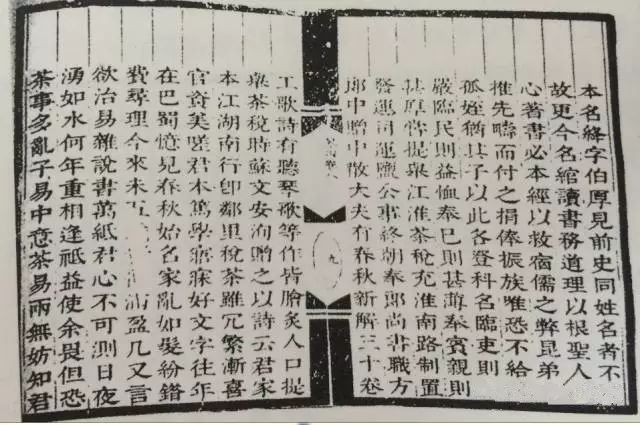 本名絳字伯厚見前史同姓名者不
故更今名綰讀書務道理以根聖人
心著書必本經以救宿儒之弊昆弟
惟先疇而付之捐俸振族唯恐不給
孤姪猶其子以此各登科名臨吏則
嚴臨民則益恤奉己則甚薄奉賓親則
甚厚嘗提舉江淮茶稅充淮南路制置
發運司運鹽公事終朝奉郎尚書職方
郎中贈中散大夫有春秋新解三十卷
九
工歌詩有聽琴歌等作皆膾炙人口提
舉茶稅時蘇文安洵贈之以詩云君家
本江湖南行卽鄰里稅茶雖冗繁漸喜
官資美嗟君本篤學寤寐好文字往年
在巴蜀憶見春秋始名家亂如髮紛錯
費尋理今來未五滿盈几又言
欲治易雜說書萬紙君心不可測日夜
湧如水何年重相逢祗益使余畏但恐
茶事多亂子易中意茶易兩無妨知君